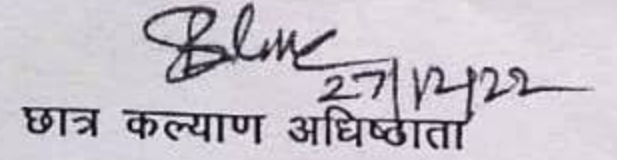 27/12/22
छात्र कल्याण अधिष्ठाता